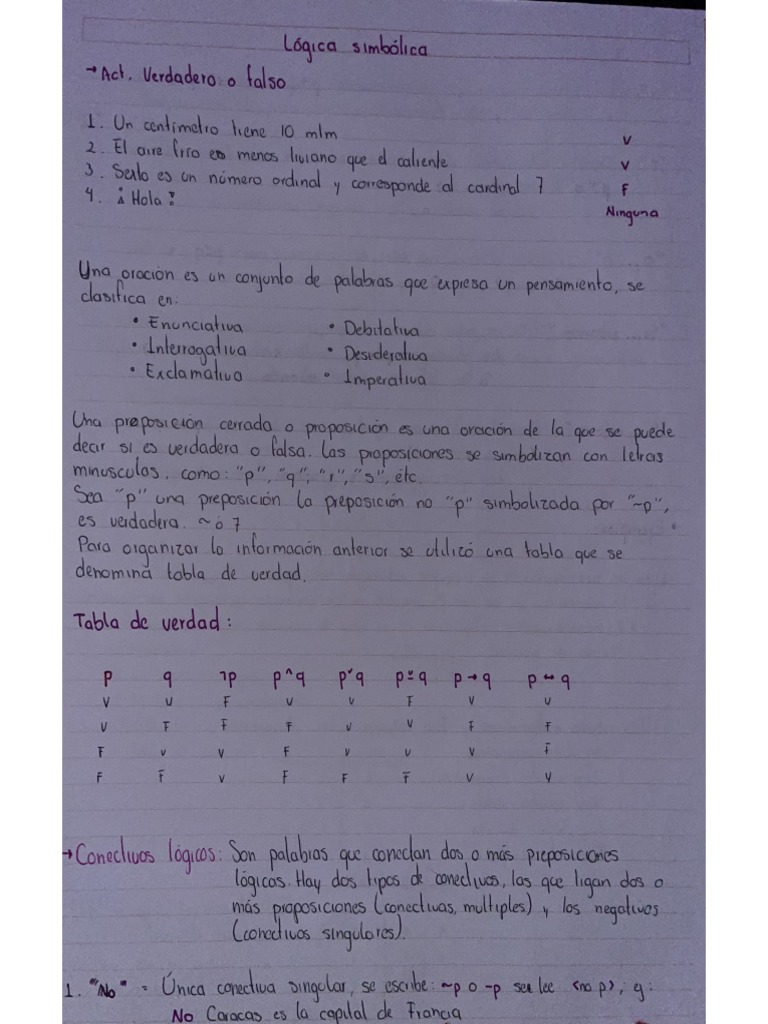 Lógica simbólica
→ Act. Verdadero o falso
1. Un centímetro tiene 10 mlm V
2. El aire frio es menos liviano que el caliente V
3. Sexto es un número ordinal y corresponde al cardinal 7 F
4. ¡Hola! Ninguna
Una oración es un conjunto de palabras que expresa un pensamiento, se
clasifica en:
• Enunciativa • Debitativa
• Interrogativa • Desiderativa
• Exclamativa • Imperativa
Una preposición cerrada o proposición es una oración de la que se puede
decir si es verdadera o falsa. Las proposiciones se simbolizan con letras
minusculas, como: "p", "q", "r", "s", etc.
Sea "p" una preposición la preposición no "p" simbolizada por "~p",
es verdadera. ~ ó 7
Para organizar la información anterior se utilizó una tabla que se
denomina tabla de verdad.
Tabla de verdad:
p q ¬p p^q p˅q p⊻q p→q p↔q
V V F V V F V V
V F F F V V F F
F V V F V V V F
F F V F F F V V
→ Conectivos lógicos: Son palabras que conectan dos o más preposiciones
lógicas. Hay dos tipos de conectivos, las que ligan dos o
más proposiciones (conectivas, multiples) y los negativos
(conectivos singulares).
1. "No" = Única conectiva singular, se escribe: ~p o ¬p se lee <no p>, ej:
No Caracas es la capital de Francia